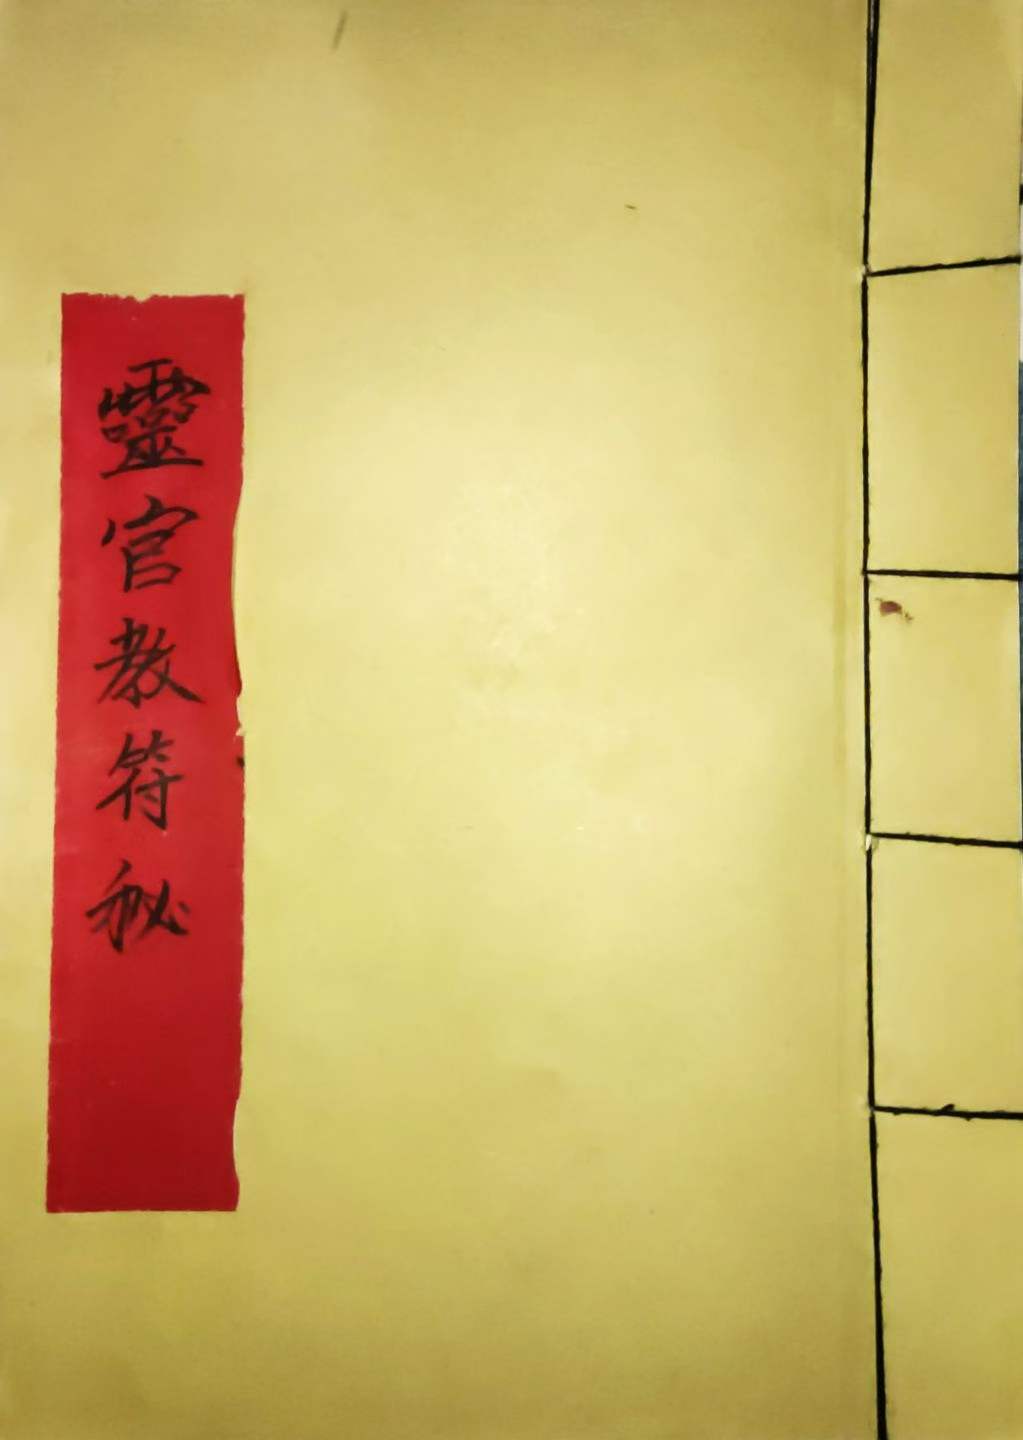 靈官教符秘